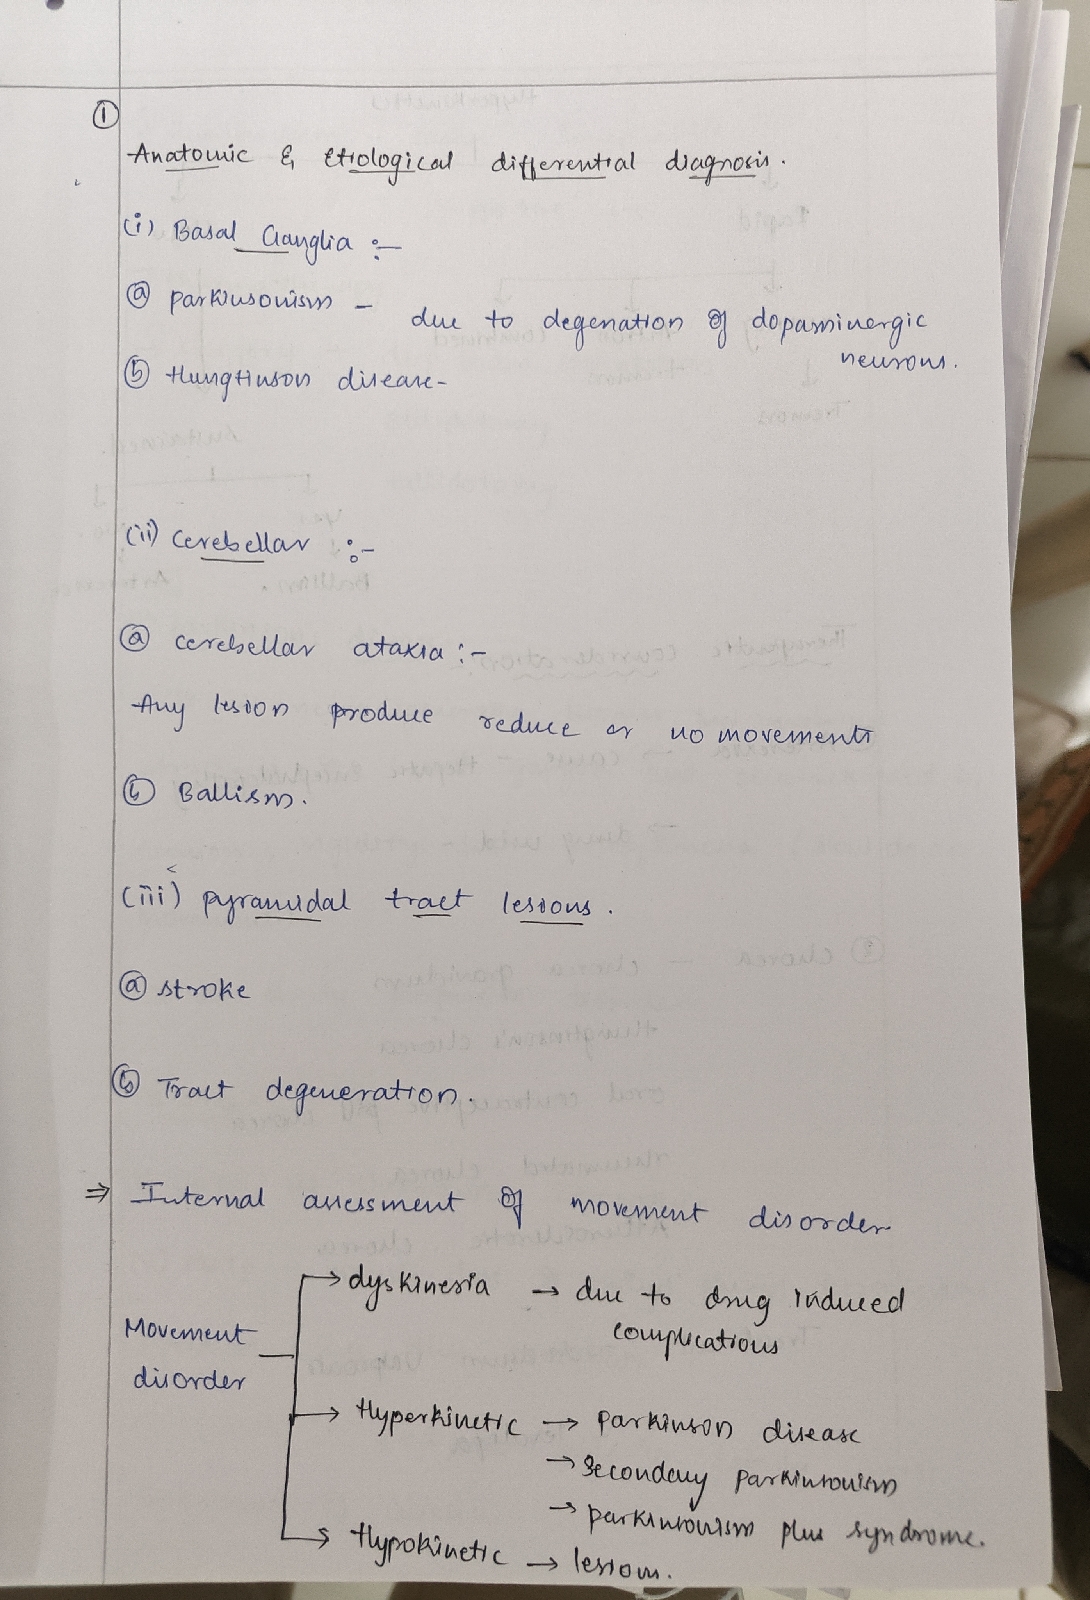 ①
Anatomic & Etiological differential diagnosis.
(i) Basal Ganglia :-
ⓐ parkinsonism - due to degenation of dopaminergic
neurons.
ⓑ Hungtinson disease-
(ii) cerebellar :-
ⓐ cerebellar ataxia :-
Any lesion produce reduce or no movements
ⓑ Ballism.
(iii) pyramidal tract lesions.
ⓐ stroke
ⓑ Tract degeneration.
⇒ Internal assessment of movement disorder
Movement disorder
→ dyskinesia → due to drug induced
complications
→ Hyperkinetic → parkinson disease
→ secondary parkinsonism
→ parkinsonism plus syndrome.
→ Hypokinetic → lesions.